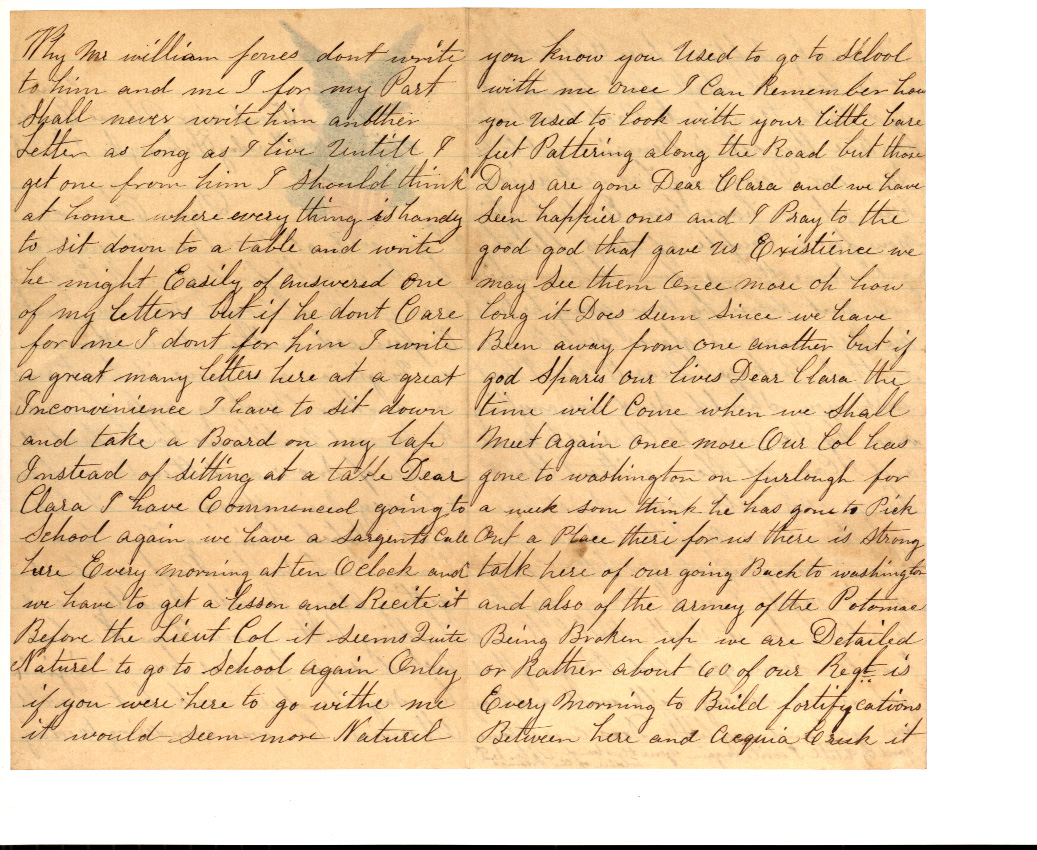 Why Mr william jones dont write
to him and me I for my Part
Shall never write him another
Letter as long as I live Untill I
get one from him I should think
at home where every thing is handy
to sit down to a table and write
he might Easily of answered one
of my letters but if he dont Care
for me I dont for him I write
a great many letters here at a great
Inconvinience I have to sit down
and take a Board on my lap
Instead of sitting at a table Dear
Clara I have Commenced going to
School again we have a Sargents Call
here Every morning at ten Oclock and
we have to get a lesson and Recite it
Before the Lieut Col it seems Quite
Naturel to go to School again Onley
if you were here to go withe me
it would seem more Naturel
you know you Used to go to School
with me once I Can Remember how
you Used to look with your little bare
feet Pattering along the Road but those
Days are gone Dear Clara and we have
Seen happier ones and I Pray to the
good god that gave us Existience we
may See them Once more oh how
long it Does seem since we have
Been away from one another but if
god Spares our lives Dear Clara the
time will Come when we Shall
Meet again once more Our Col has
gone to washington on furlough for
a week som think he has gone to Pick
Out a Place their for us there is strong
talk here of our going Back to washington
and also of the armey of the Potomac
Being Broken up we are Detailed
or Rather about 60 of our Regt is
Every Morning to Build fortifycations
Between here and Acquia Creek it